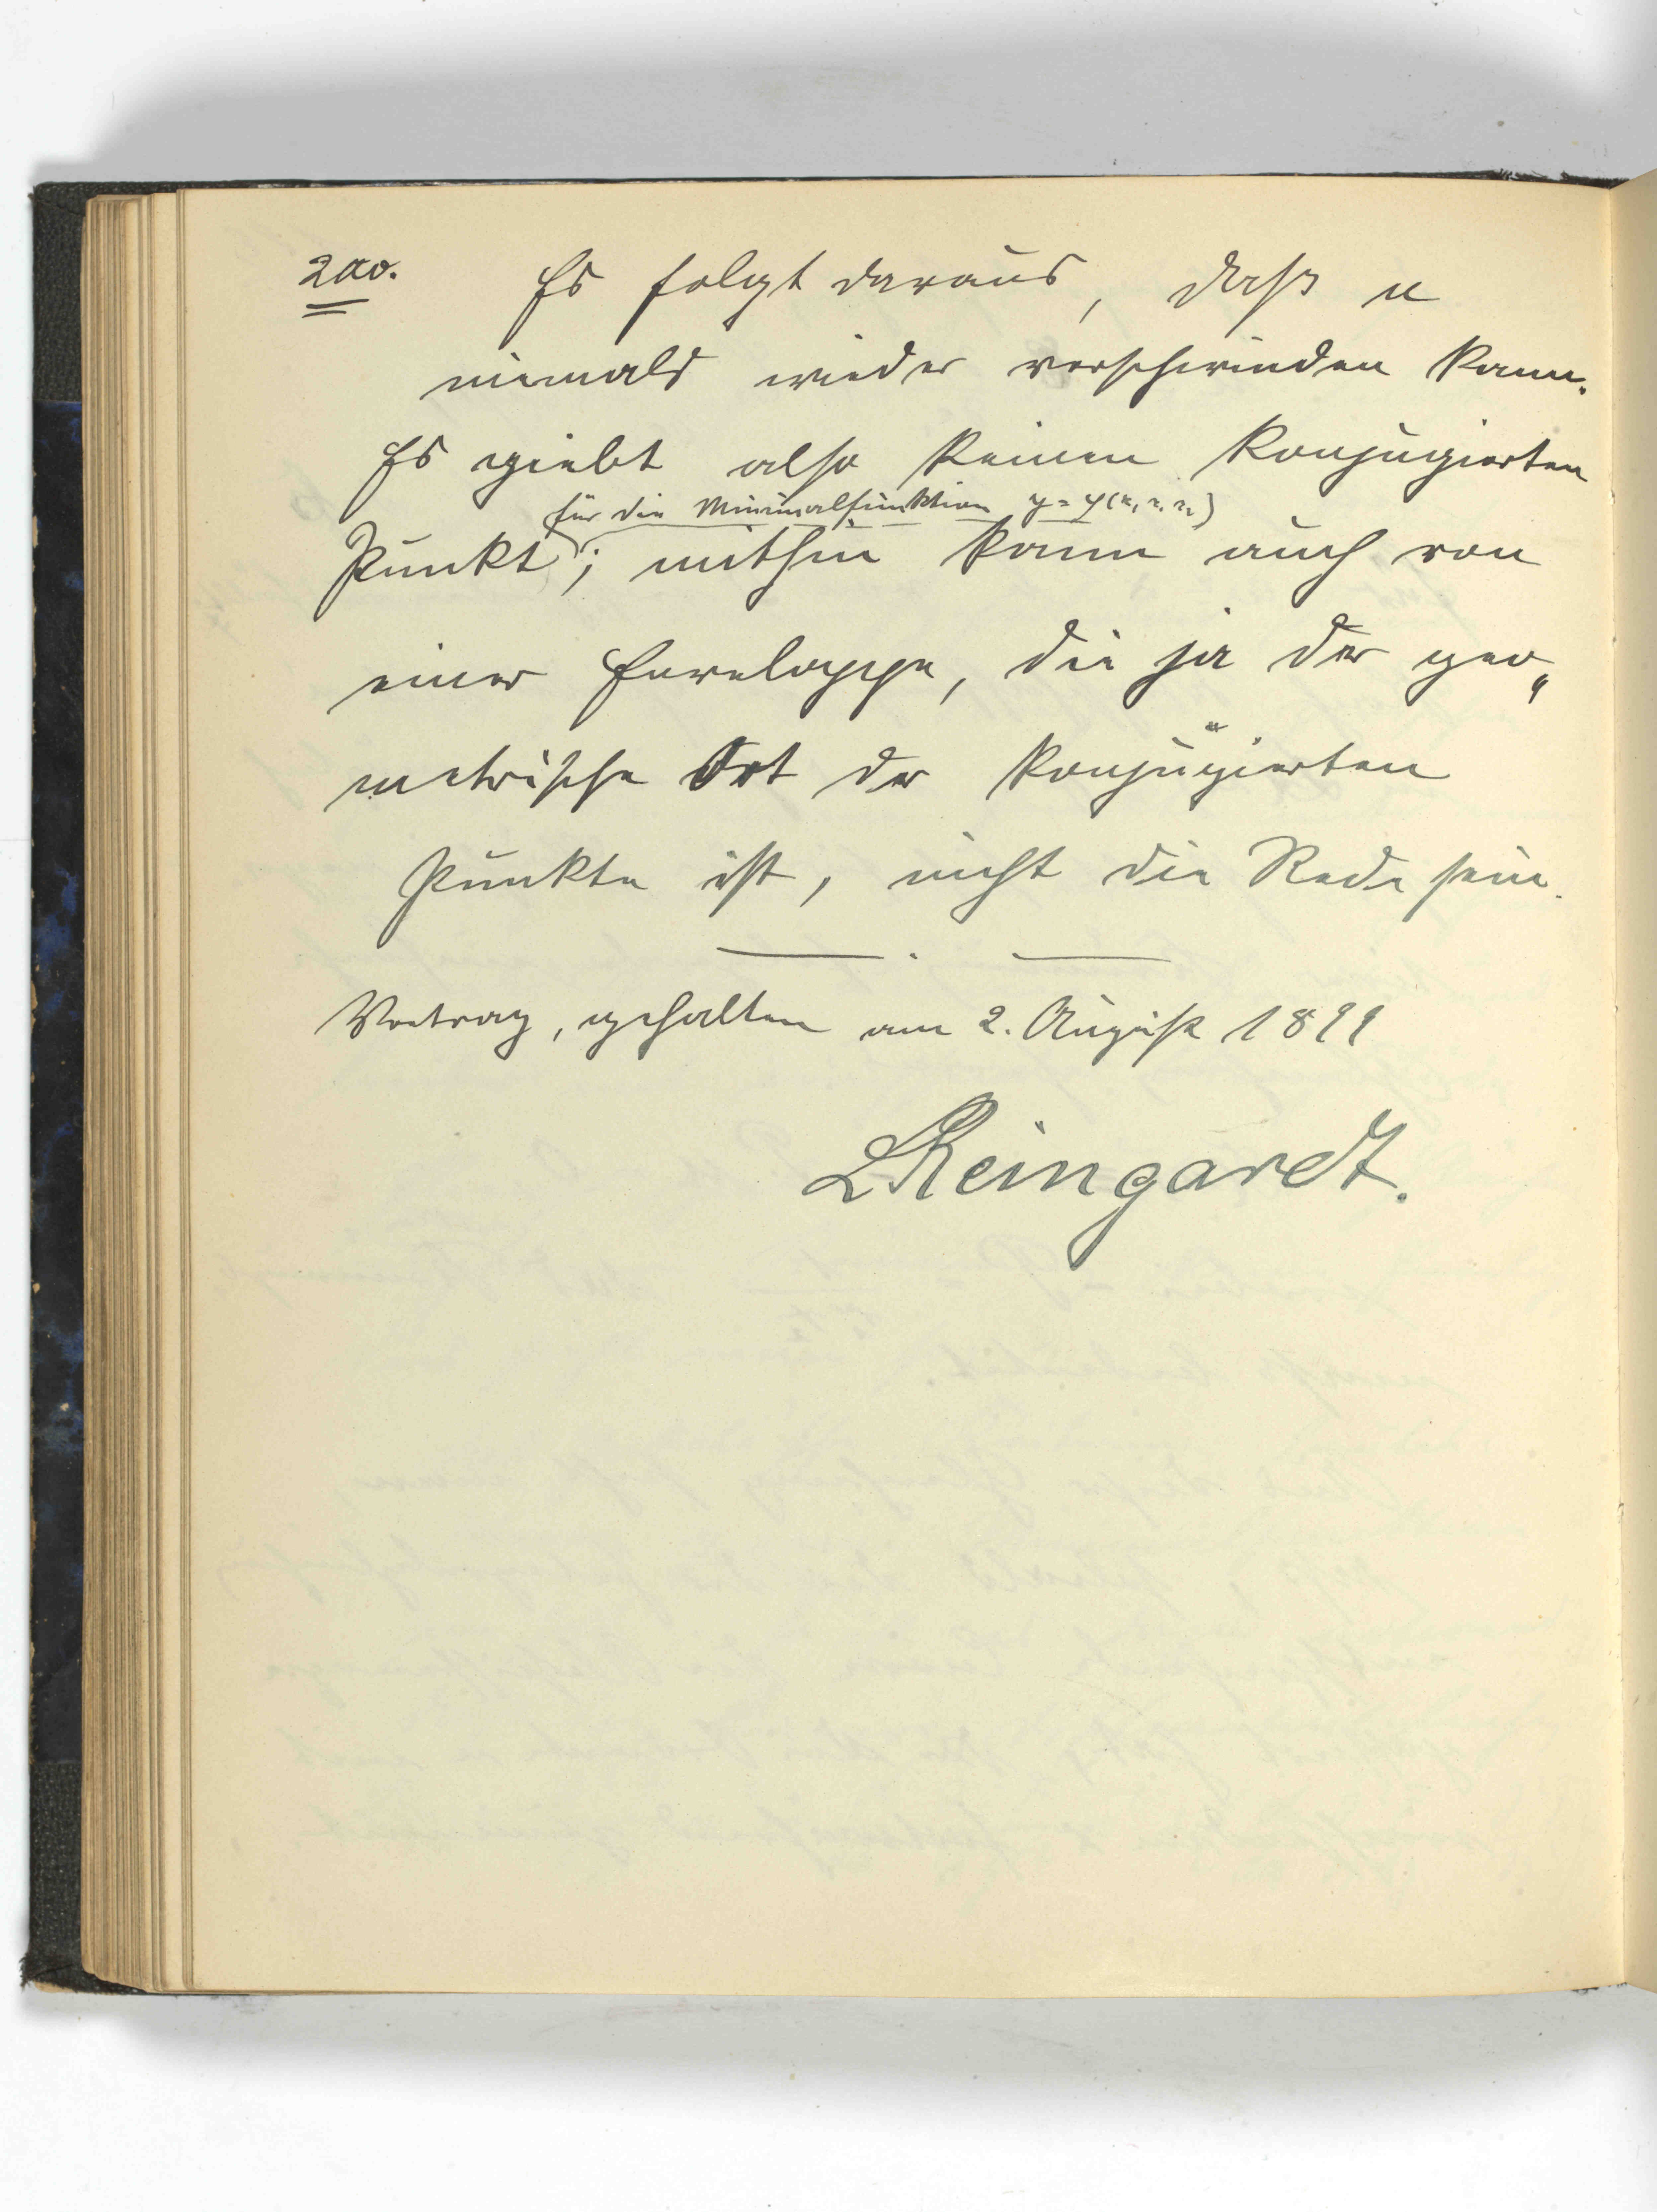 200. Es folgt daraus, daß u
niemals wieder verschwinden kann.
Es giebt also keinen konjugierten
für die Minimalfunktion y = y(x,
Punkt; mithin kann auch von
einer Enveloppe, die ja der geo„
metrische Ort der konjugierten
Punkte ist, nicht die Rede sein.
Vortrag, gehalten am 2. August 1899
LReingardt.